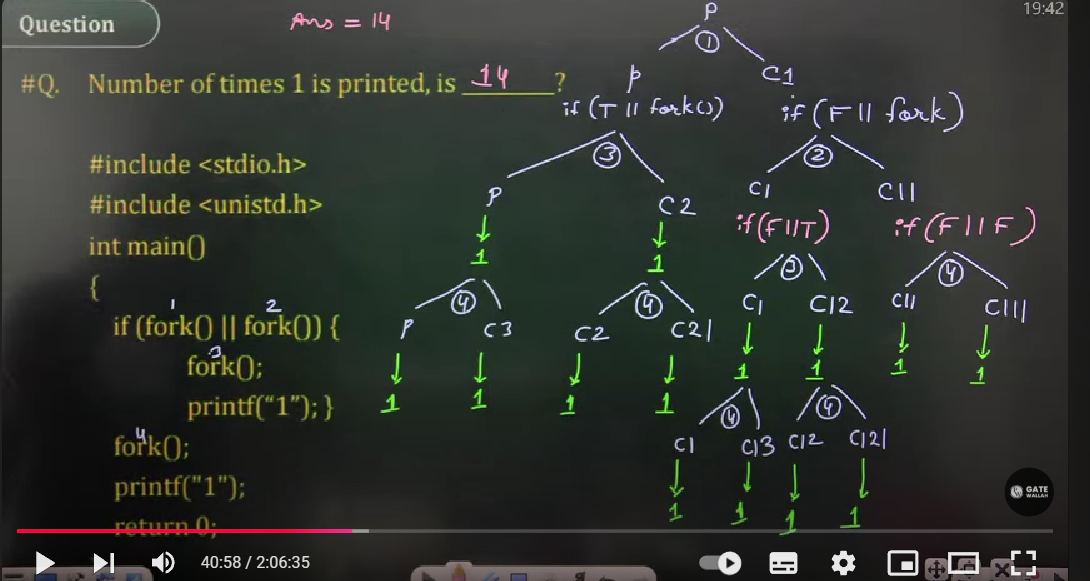 Question
Ans = 14
19:42
#Q. Number of times 1 is printed, is 14 ?
#include <stdio.h>
#include <unistd.h>
int main()
{
1 2
if (fork() || fork()) {
3
fork();
printf("1"); }
4
fork();
printf("1");
return 0;
P
1
P C1
if (T || fork()) if (F || fork)
3 2
P C2 C1 C11
if (F || T) if (F || F)
1 1
3 4
4 4
C1 C12 C11 C111
P C3 C2 C21
1 1 1 1
1 1 1 1
4 4
C1 C13 C12 C121
1 1 1 1
GATE
WALLAH
40:58 / 2:06:35